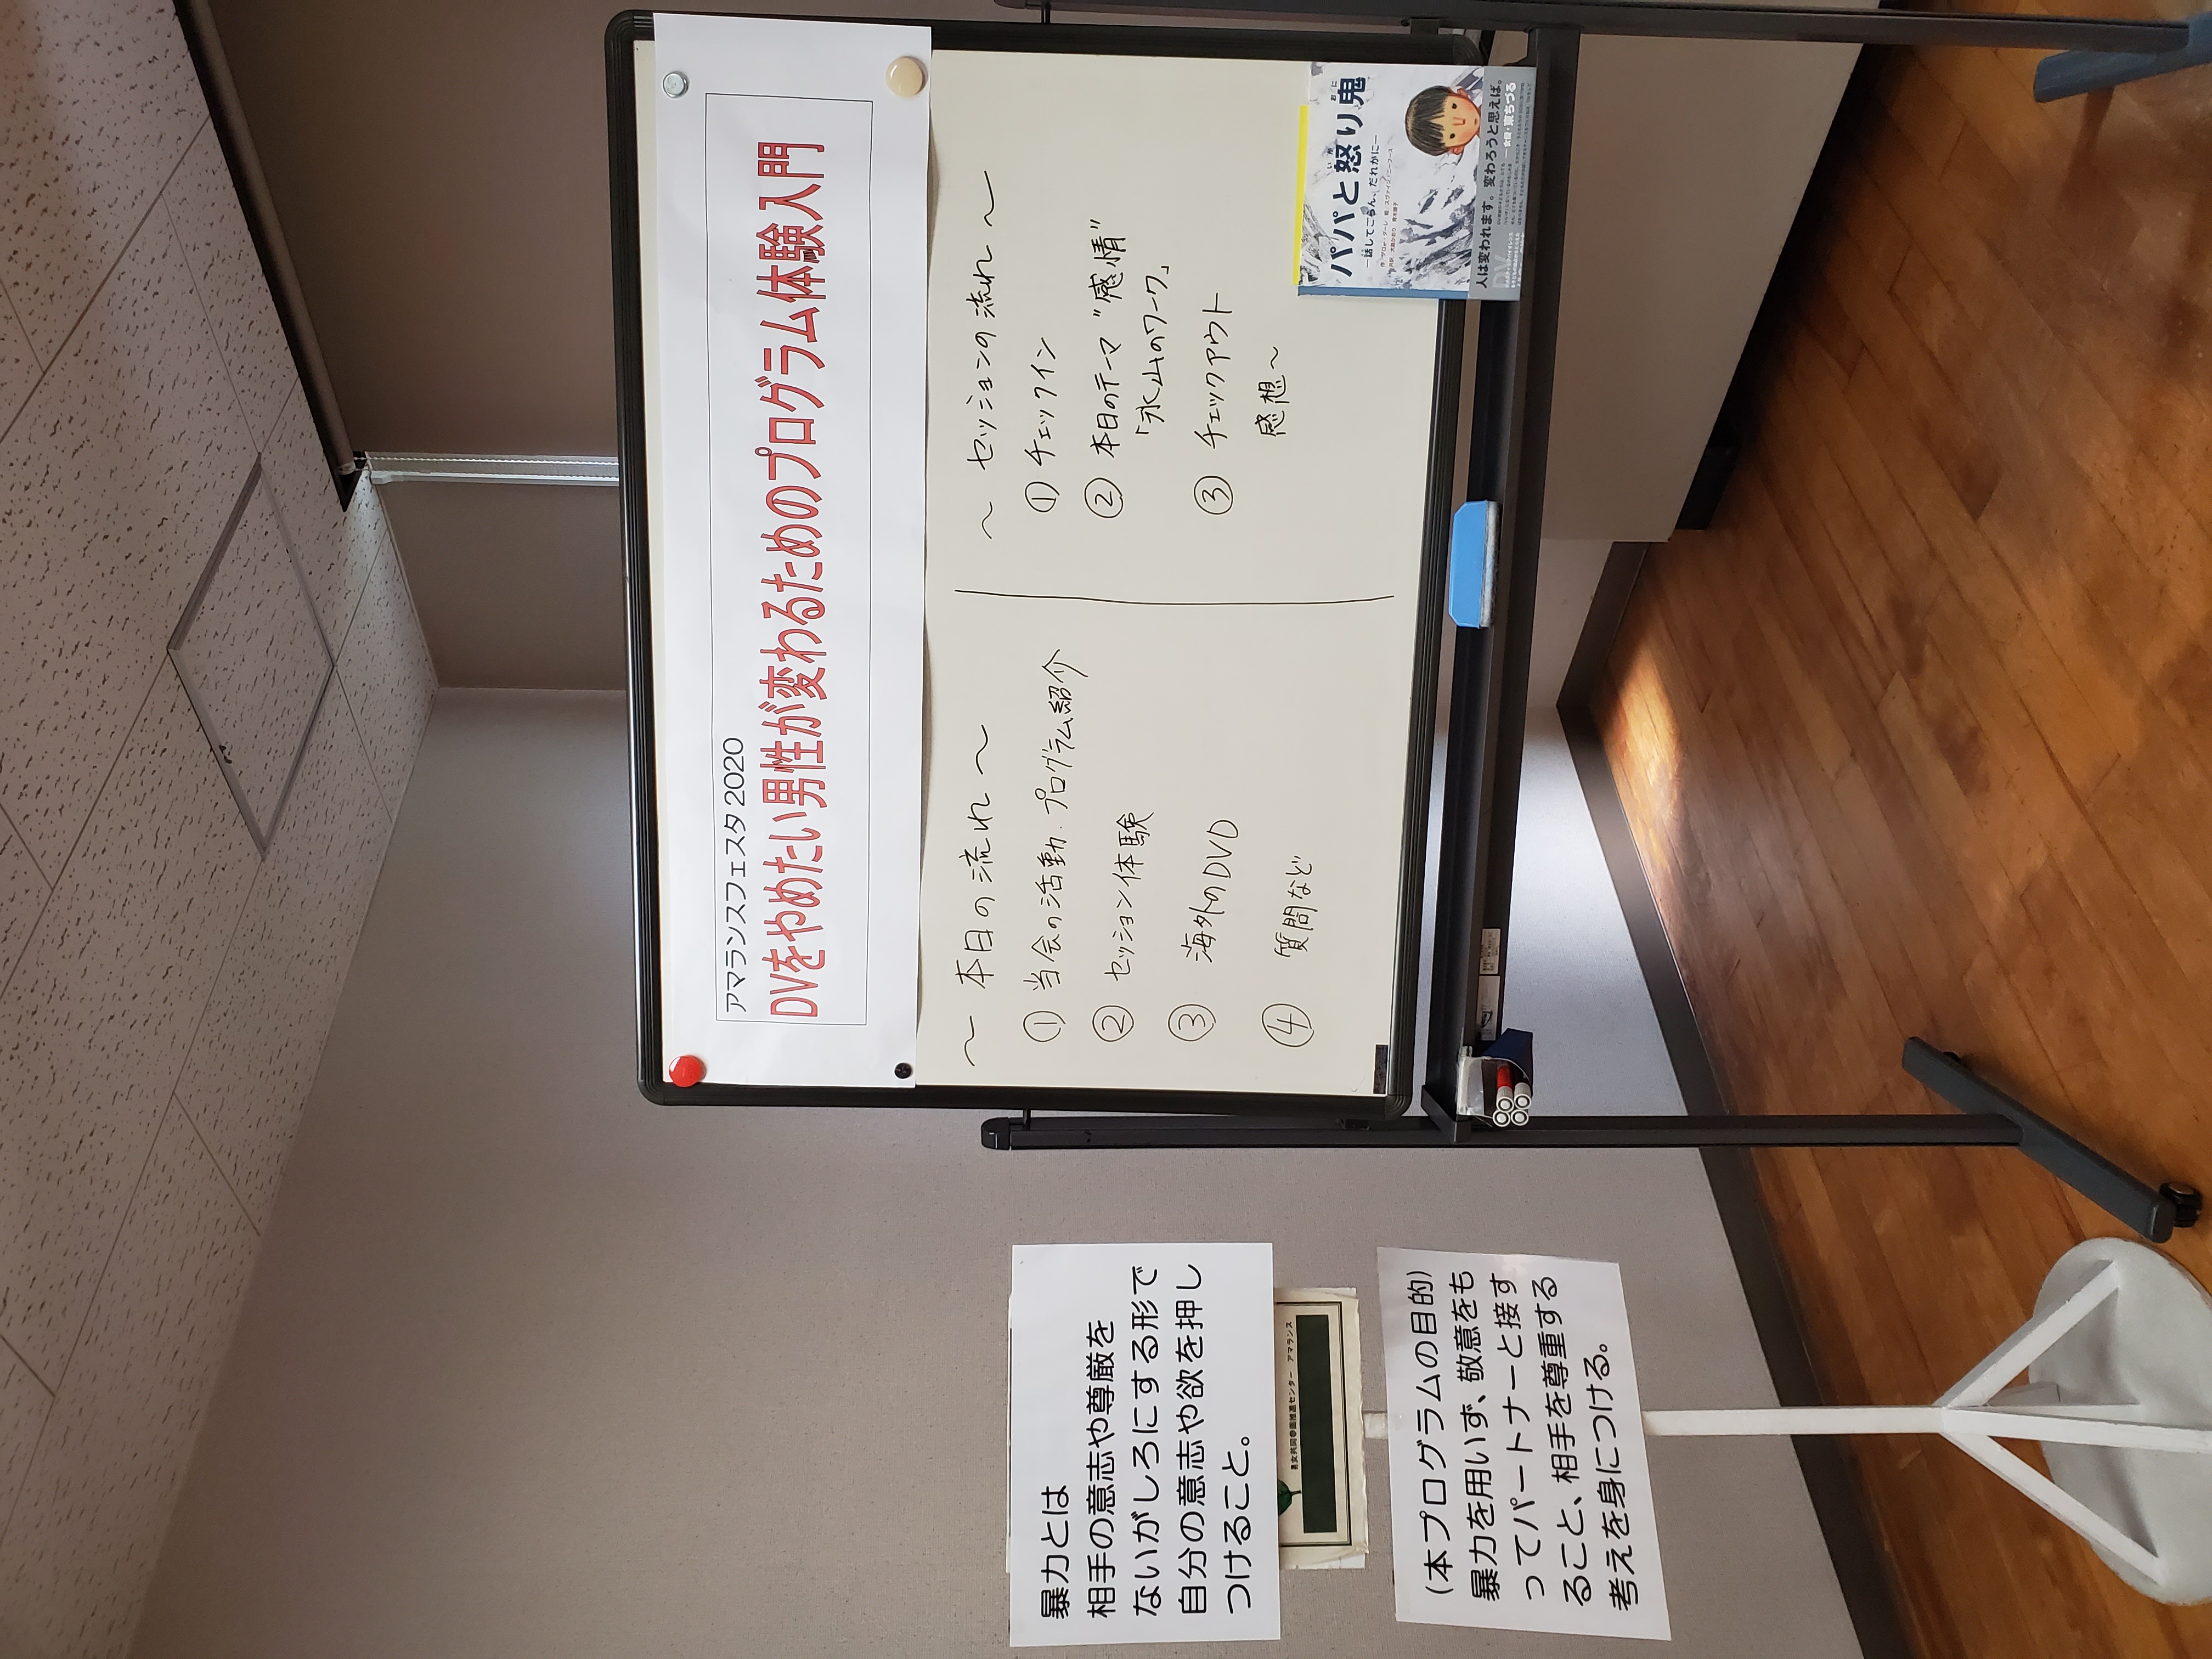 アマランスフェスタ2020
DVをやめたい男性が変わるためのプログラム体験入門
～ 本日の流れ ～
① 当会の活動、プログラム紹介
② セッション体験
③ 海外のDVD
④ 質問など
～ セッションの流れ ～
① チェックイン
② 本日のテーマ "感情"
「氷山のワーク」
③ チェックアウト
感想～
パパと怒り鬼
いか おに
―話してごらん、だれかに―
人は変われます。変わろうと思えば。
暴力とは
相手の意志や尊厳を
ないがしろにする形で
自分の意志や欲を押し
つけること。
男女共同参画推進センター アマランス
（本プログラムの目的）
暴力を用いず、敬意をも
ってパートナーと接す
ること、相手を尊重する
考えを身につける。